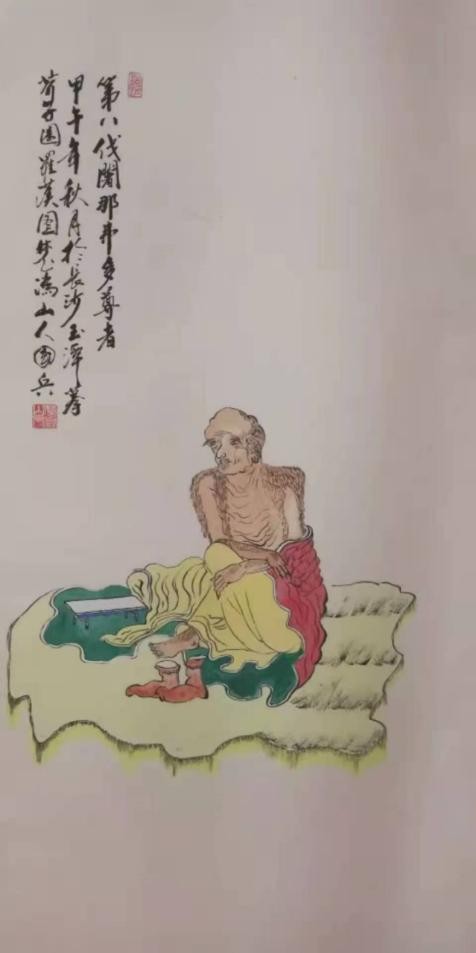 第八伐闍那弗多尊者
甲午年秋月於長沙玉潭摹
芥子園羅漢圖 山人國兵